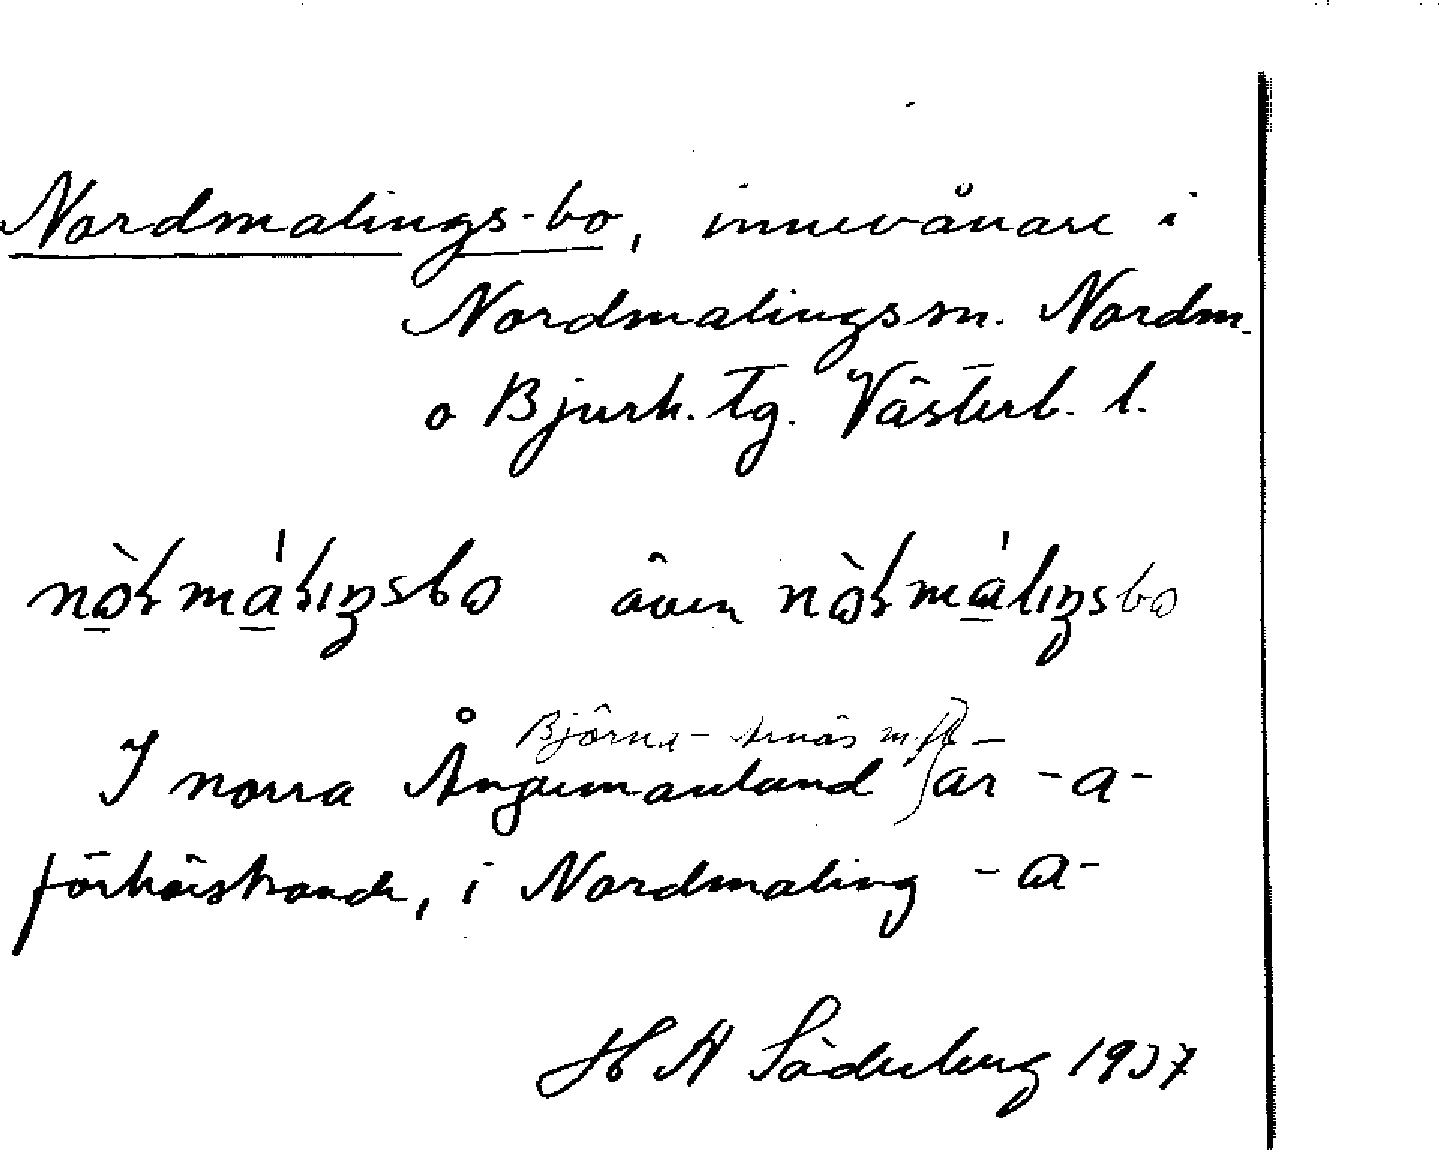 Nordmalings-bo, innevånare i
Nordmalings sn. Nordm.
o Bjurh. tg. Västerb. l.
även
Björna - Arnäs m.fl.
I norra Ångermanland är -a-
förhärskande, i Nordmaling -ɑ-
H A Söderberg 1937